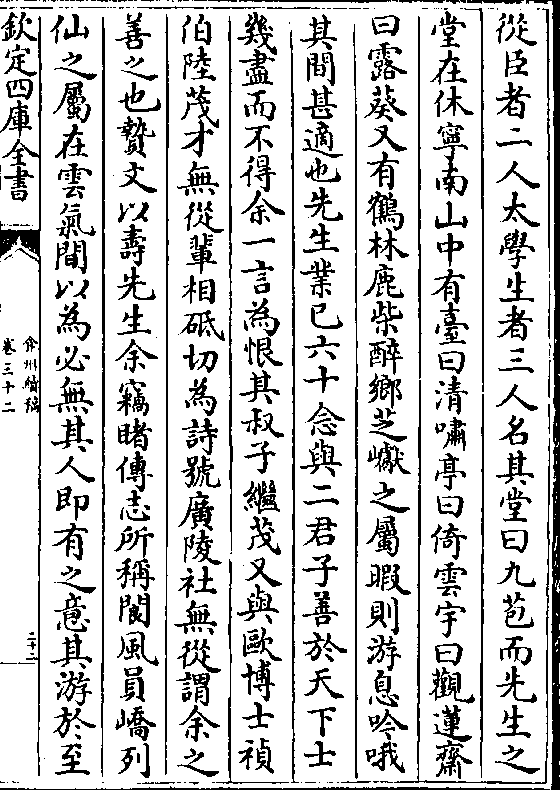 從臣者二人太學生者三人名其堂曰九苞而先生之
堂在休寧南山中有臺曰清嘯亭曰倚雲宇曰觀蓮齋
曰露葵又有鶴林鹿柴醉鄉芝巘之屬暇則游息吟哦
其間甚適也先生業已六十念與二君子善於天下士
幾盡而不得余一言為恨其叔子繼茂又與歐博士禎
伯陸茂才無從輩相砥切為詩號廣陵社無從謂余之
善之也贄文以壽先生余竊睹傳志所稱閬風員嶠列
仙之屬在雲氣間以為必無其人即有之意其游於至
欽定四庫全書
弇州續稿
卷三十二
二十二